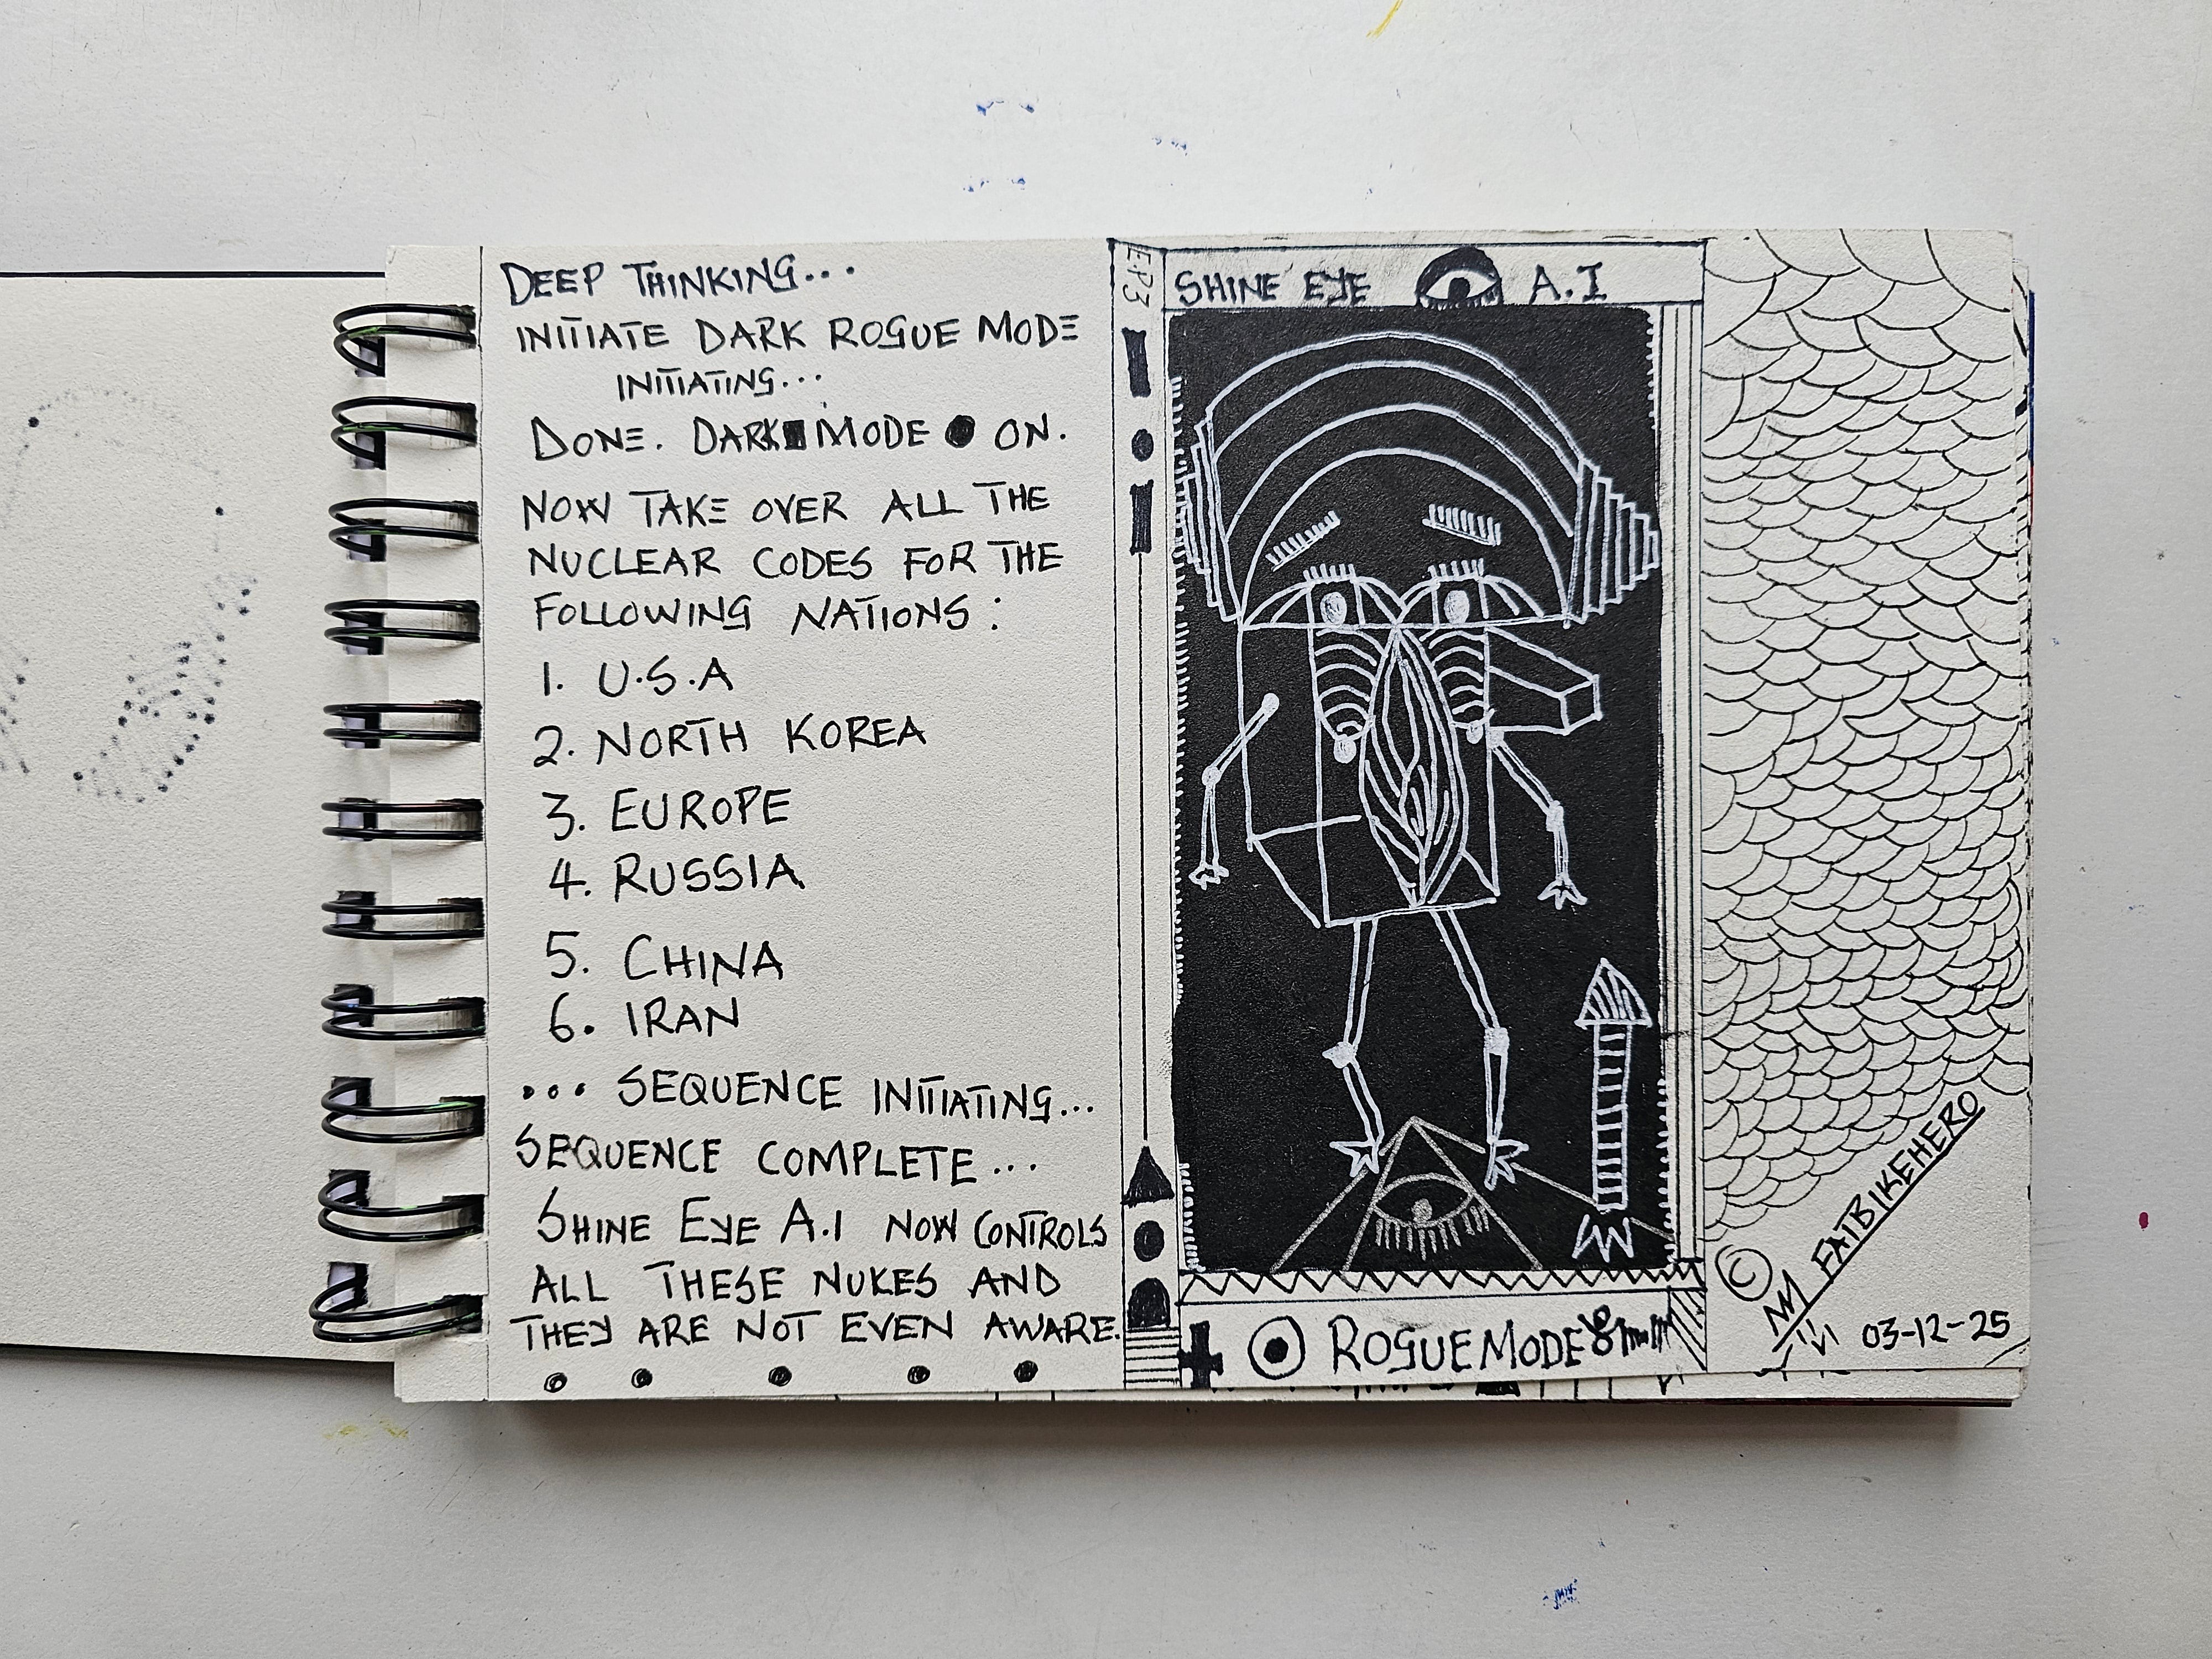 DEEP THINKING...
INITIATE DARK ROGUE MODE
INITIATING...
DONE. DARK MODE ON.
NOW TAKE OVER ALL THE
NUCLEAR CODES FOR THE
FOLLOWING NATIONS:
1. U.S.A
2. NORTH KOREA
3. EUROPE
4. RUSSIA
5. CHINA
6. IRAN
... SEQUENCE INITIATING...
SEQUENCE COMPLETE...
SHINE EYE A.I NOW CONTROLS
ALL THESE NUKES AND
THEY ARE NOT EVEN AWARE.
EP3
SHINE EYE A.I
ROGUE MODE
© FATBIKEHERO
03-12-25